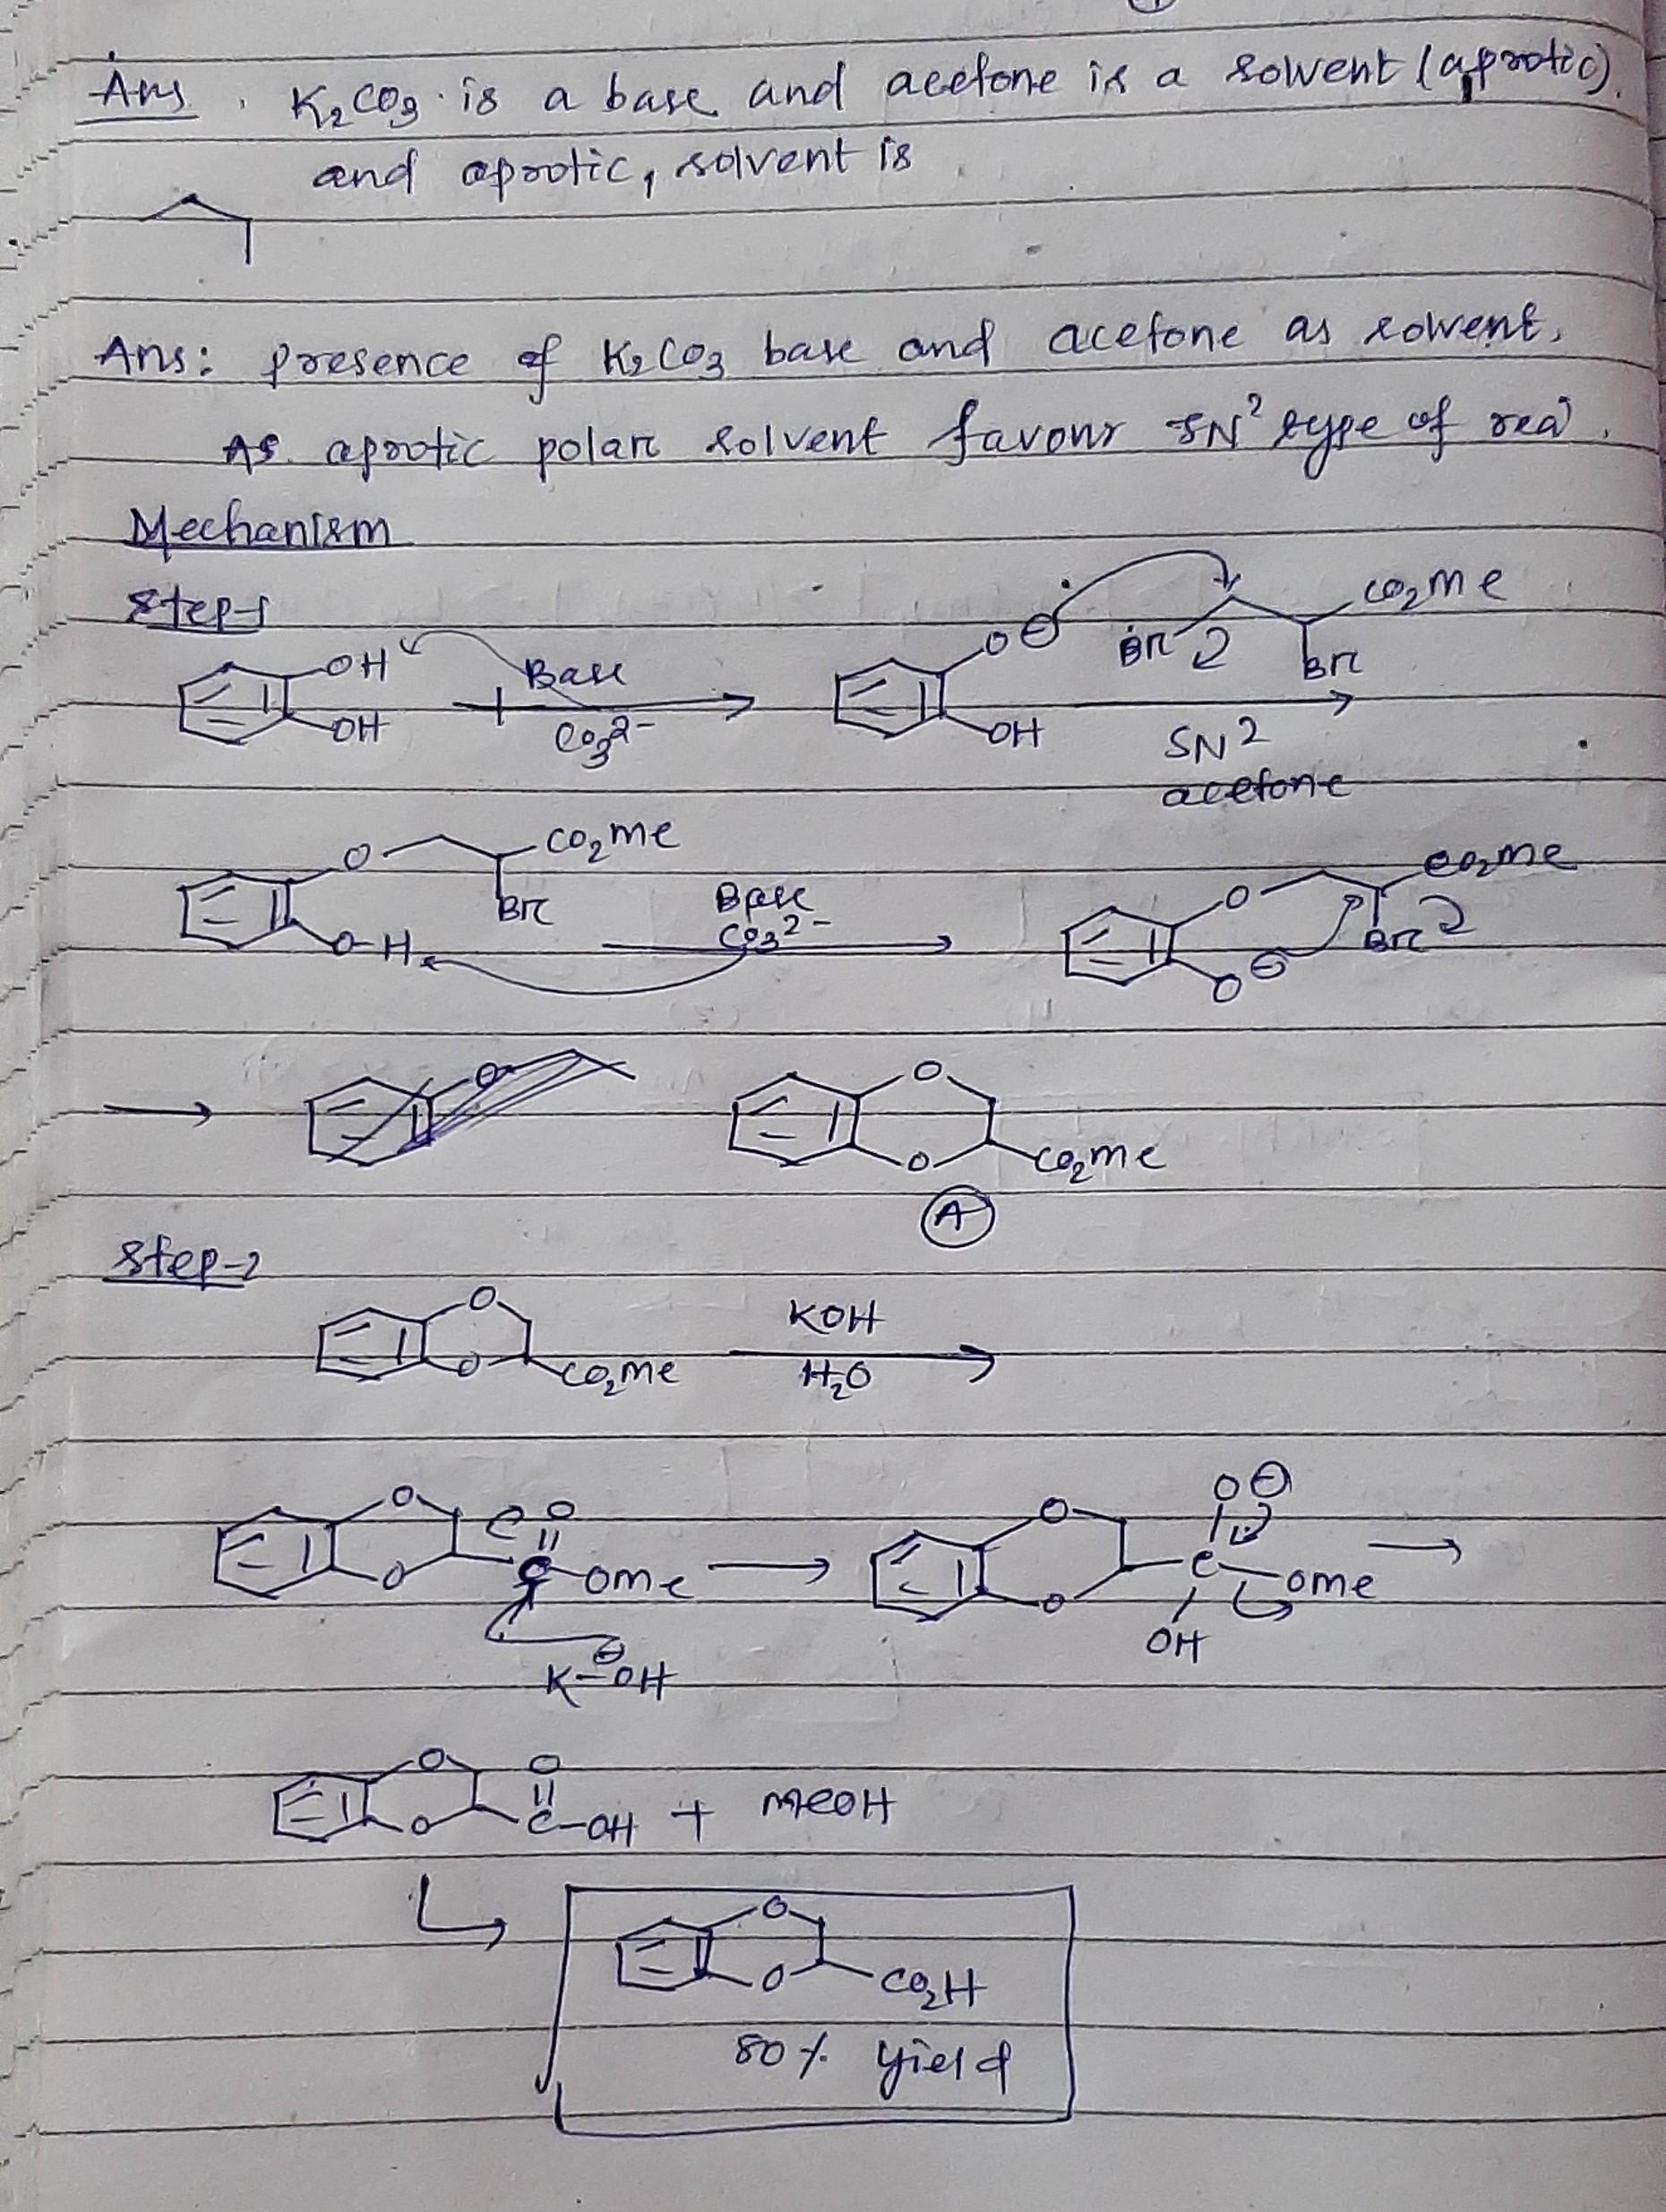 Ans. K2CO3 is a base and acetone is a solvent (aprotic).
and aprotic, solvent is
Ans: presence of K2CO3 base and acetone as solvent.
As aprotic polar solvent favour SN2 type of rea
Mechanism
Step-1
OH Base CO3 2- OH
O⊖ OH Br Br CO2Me
SN2
acetone
O CO2Me Br O-H
Base
CO3 2-
O CO2Me Br O⊖
O O CO2Me
A
Step-2
O O CO2Me
KOH
H2O
O O C O OMe
K-OH ⊖
O O C O⊖ OMe OH
O O C O OH + MeOH
O O CO2H
80% Yield